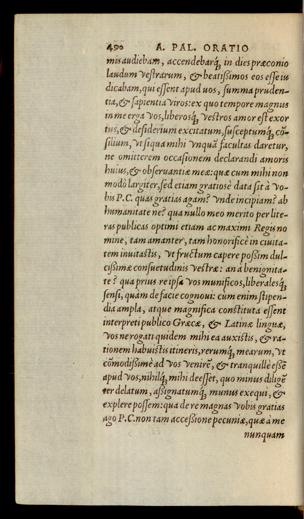 490 A. PAL. ORATIO
mis audiebam, accendebarq́; in dies præconio
laudum vestrarum, & beatissimos eos esse iu
dicabam, qui essent apud vos, summa pruden-
tia, & sapientia viros: ex quo tempore magnus
in me erga vos, liberosq́; vestros amor est exor
tus, & desiderium excitatum, susceptumq́; cō-
silium, vt si qua mihi vnquā facultas daretur,
ne omitterem occasionem declarandi amoris
huius, & obseruantiæ meæ: quæ cum mihi non
modò largiter, sed etiam gratiose data sit à vo-
bis P.C. quas gratias agam? vnde incipiam? ab
humanitate ne? qua nullo meo merito per lite-
ras publicas optimi etiam ac maximi Regis no
mine, tam amanter, tam honorificè in ciuita-
tem inuitastis, vt fructum capere possim dul-
cissimæ consuetudinis vestræ: an à benignita-
te? qua prius re ipsa vos munificos, liberalesq́;
sensi, quam de facie cognoui: cum enim stipen-
dia ampla, atque magnifica constituta essent
interpreti publico Græcæ, & Latinæ linguæ,
vos ne rogati quidem mihi ea auxistis, & ra-
tionem habuistis itineris, rerumq́; mearum, vt
cōmodissimè ad vos venirē, & tranquillè essē
apud vos, nihilq́; mihi deesset, quo minus diligē
ter delatum, assignatumq́; munus exequi, &
explere possem: qua de re magnas vobis gratias
ago P.C. non tam accessione pecuniæ, quæ à me
nunquam